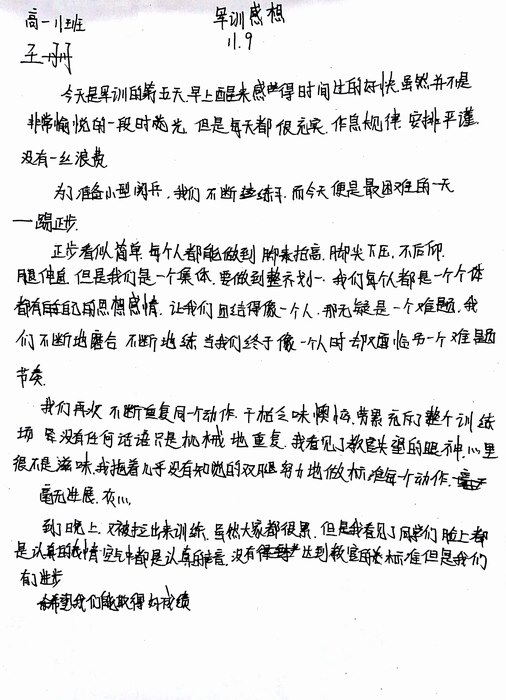 高一11班
军训感想
11.9
王丹丹
今天是军训的第五天.早上醒来感觉得时间过的好快.虽然并不是
非常愉悦的一段时光.但是每天都很充实.作息规律.安排严谨.
没有一丝浪费
为了准备小型阅兵.我们不断练.而今天便是最困难的一天
一踢正步.
正步看似简单.每个人都能做到 脚来抬高.脚尖下压.不后仰.
腿伸直.但是我们是一个集体.要做到整齐划一.我们每个人都是一个个体
都有自己的思想感情.让我们团结得像一个人.那无疑是一个难题.我
们不断地磨合 不断地练 当我们终于像一个人时却又面临另一个难题
节奏.
我们再次 不断重复同一个动作.干枯乏味懊恼.劳累充斥了整个训练
场 没有任何话语只是机械地重复.我看见了教官失望的眼神.心里
很不是滋味.我拖着几乎没有知觉的双腿努力地做标准每个动作.
毫无进展.灰心.
到了晚上.又被拉出来训练.虽然大家都很累.但是我看见了同学们脸上都
是认真的表情 空气中都是认真的声音.没有达到教官的标准但是我们
有了进步
希望我们能取得好成绩